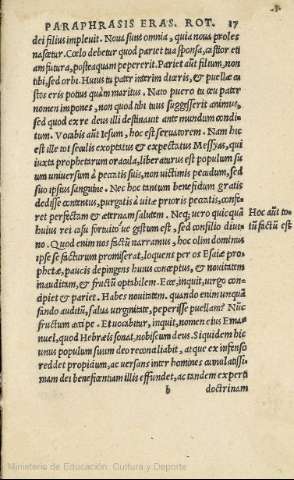 PARAPHRASIS ERAS. ROT. 17
dei filius impleuit. Noua sunt omnia, quia noua proles
nascetur. Cœlo debetur quod pariet tua sponsa, castior eti
am futura, posteaquam pepererit. Pariet aūt filium, non
tibi, sed orbi. Huius tu pater interim diceris, & puellæ cu
stos eris potius quàm maritus. Nato puero tu ceu pater
nomen impones, non quod tibi tuus suggesserit animus,
sed quod ex re deus illi destinauit ante mundum condi
tum. Vocabis aūt Iesum, hoc est seruatorem. Nam hic
est ille tot seculis exoptatus & expectatus Messyas, qui
iuxta prophetarum oracula, liberaturus est populum su
um uniuersum à peccatis suis, non uictimis pecudum, sed
suo ipsius sanguine. Nec hoc tantum beneficium gratis
dedisse contentus, purgatis à uitæ prioris peccatis, confe
ret perfectam & æternam salutem. Neq; uero quicquā
huius rei casu fortuito ue gestum est, sed consilio diui
no. Quod enim nos factū narramus, hoc olim dominus
ipse se facturum promiserat, loquens per os Esaiæ pro
phetæ, paucis depingens huius conceptus, & nouitatem
inauditam, & fructū optabilem. Ecce, inquit, uirgo con
cipiet & pariet. Habes nouitatem. quando enim unquā
fando auditū, salua uirginitate, peperisse puellam? Nūc
fructum accipe. Et uocabitur, inquit, nomen eius Ema
nuel, quod Hebræis sonat, nobiscum deus. Siquidem hic
unus populum suum deo reconciliabit, atque ex infenso
reddet propicium, ac uersans inter homines cumulatissi
mam dei beneficentiam illis effundet, ac tandem experti
b doctrinam
Hoc aūt to-
tū factū est
Ministerio de Educación, Cultura y Deporte